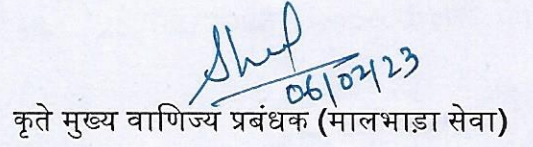 06/02/23
कृते मुख्य वाणिज्य प्रबंधक (मालभाड़ा सेवा)